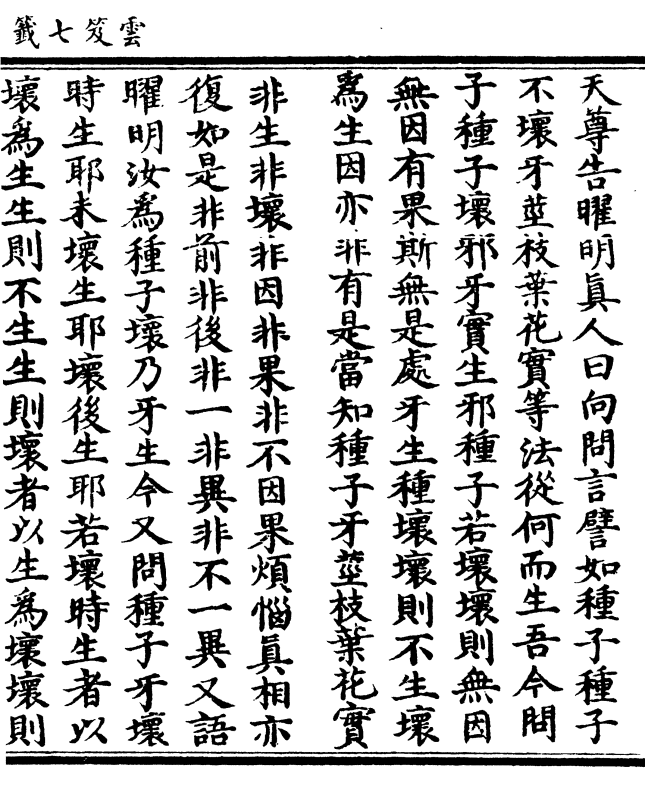 雲笈七籤
天尊告曜明眞人曰向問言譬如種子種子
不壞牙莖枝葉花實等法從何而生吾今問
子種子壞邪牙實生邪種子若壞壞則無因
無因有果斯無是處牙生種壞壞則不生壞
爲生因亦非有是當知種子牙莖枝葉花實
非生非壞非因非果非不因果煩惱眞相亦
復如是非前非後非一非異非不一異又語
曜明汝爲種子壞乃牙生今又問種子牙壞
時生耶未壞生耶壞後生耶若壞時生者以
壞爲生生則不生生則壞者以生爲壞壞則